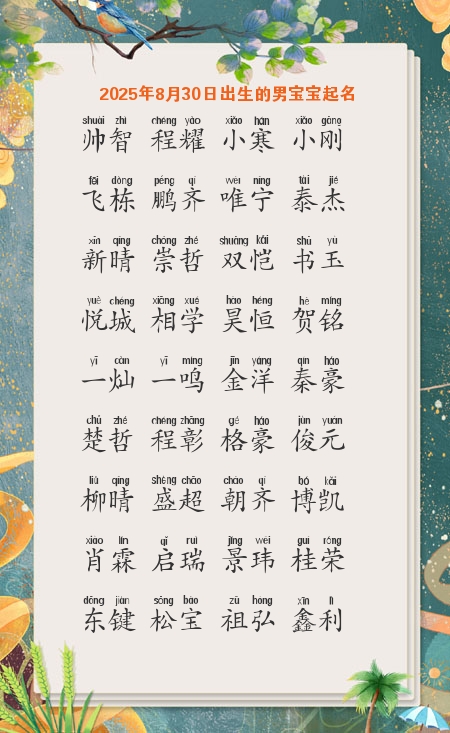 2025年8月30日出生的男宝宝起名
shuài zhì chéng yào xiǎo hán xiǎo gāng
帅智 程耀 小寒 小刚
fēi dòng péng qí wéi níng tài jié
飞栋 鹏齐 唯宁 泰杰
xīn qíng chóng zhé shuāng kǎi shū yù
新晴 崇哲 双恺 书玉
yuè chéng xiāng xué hào héng hè míng
悦城 相学 昊恒 贺铭
yī càn yī míng jīn yáng qín háo
一灿 一鸣 金洋 秦豪
chǔ zhé chéng zhāng gé háo jùn yuán
楚哲 程彰 格豪 俊元
liǔ qíng shèng chāo cháo qí bó kǎi
柳晴 盛超 朝齐 博凯
xiāo lín qǐ ruì jǐng wěi guì róng
肖霖 启瑞 景玮 桂荣
dōng jiàn sōng bǎo zǔ hóng xīn lì
东键 松宝 祖弘 鑫利